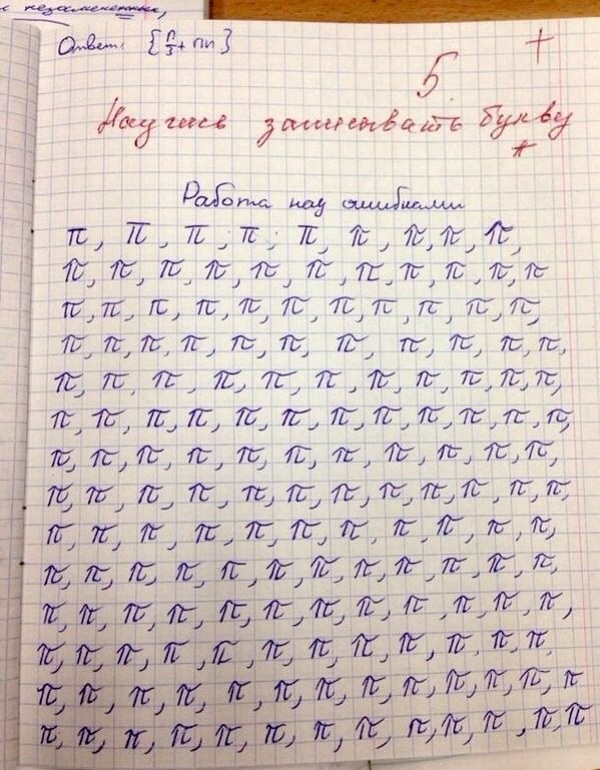 незамененных,
Ответ: {п/3 + пn}
5 +
Научись записывать букву
π
Работа над ошибками
π, π, π, π, π, π, π, π, π,
π, π, π, π, π, π, π, π, π, π, π
π, π, π, π, π, π, π, π, π, π, π,
π, π, π, π, π, π, π, π, π, π, π,
π, π, π, π, π, π, π, π, π, π, π,
π, π, π, π, π, π, π, π, π, π, π, π,
π, π, π, π, π, π, π, π, π, π, π,
π, π, π, π, π, π, π, π, π, π, π, π,
π, π, π, π, π, π, π, π, π, π, π,
π, π, π, π, π, π, π, π, π, π, π, π,
π, π, π, π, π, π, π, π, π, π, π, π,
π, π, π, π, π, π, π, π, π, π, π, π
π, π, π, π, π, π, π, π, π, π, π, π, π
π, π, π, π, π, π, π, π, π, π, π, π, π